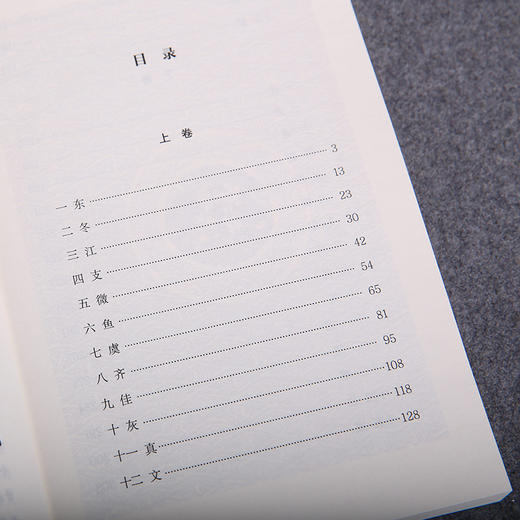 目录
上卷
一东 3
二冬 13
三江 23
四支 30
五微 42
六鱼 54
七虞 65
八齐 81
九佳 95
十灰 108
十一真 118
十二文 128